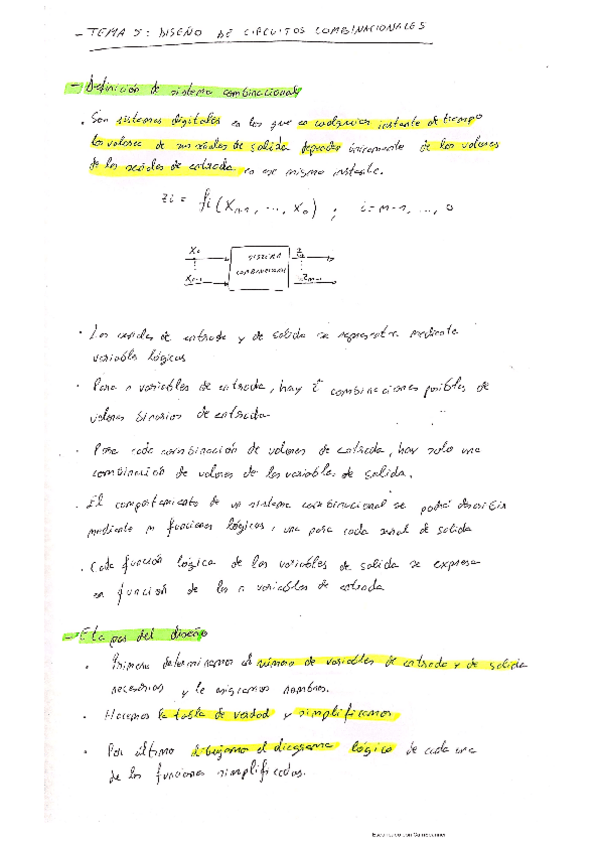 - TEMA 5: DISEÑO DE CIRCUITOS COMBINACIONALES
→ Definición de sistema combinacional
• Son sistemas digitales en los que en cualquier instante de tiempo
los valores de sus señales de salida dependen únicamente de los valores
de las señales de entrada en ese mismo instante.
zi = fi (Xn-1, ..., X0) ; i = m-1, ..., 0
X0 SISTEMA Z0
Xn-1 COMBINACIONAL Zm-1
• Las señales de entrada y de salida se representan mediante
variables lógicas
• Para n variables de entrada, hay 2^n combinaciones posibles de
valores binarios de entrada
• Para cada combinación de valores de entrada, hay solo una
combinación de valores de las variables de salida.
• El comportamiento de un sistema combinacional se podrá describir
mediante m funciones lógicas, una para cada señal de salida
• Cada función lógica de las variables de salida se expresa
en función de las n variables de entrada
→ Etapas del diseño
• Primero determinamos el número de variables de entrada y de salida
necesarias y le asignamos nombres.
• Hacemos la tabla de verdad y simplificamos
• Por último dibujamos el diagrama lógico de cada una
de las funciones simplificadas.
Escaneado con CamScanner